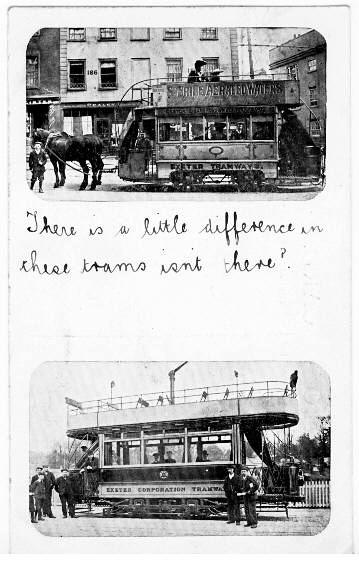 186
& AERATED WATERS
EXETER TRAMWAYS.
There is a little difference in
these trams isn't there?
EXETER CORPORATION TRAMWAYS